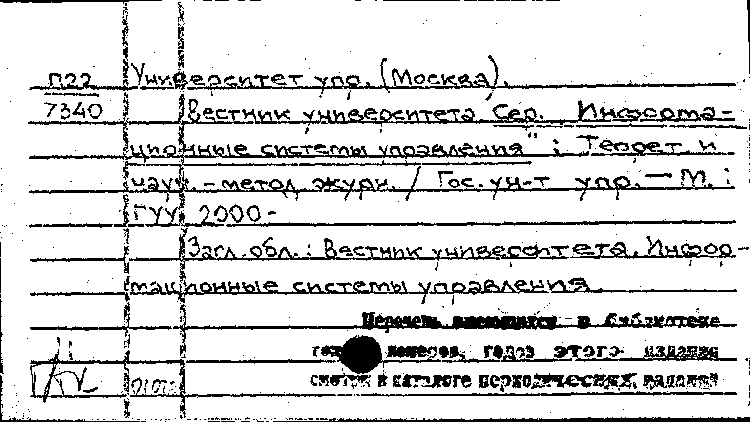 П22 Университет упр. (Москва).
7340 Вестник университета. Сер. „Информа-
ционные системы управления" : Теорет. и
науч. - метод. журн. / Гос. ун-т упр. — М. :
ГУУ, 2000-
Загл. обл. : Вестник университета. Инфор-
мационные системы управления.
Перечень имеющихся в библиотеке
номеров, годов этого издания
смотри в каталоге периодических изданий